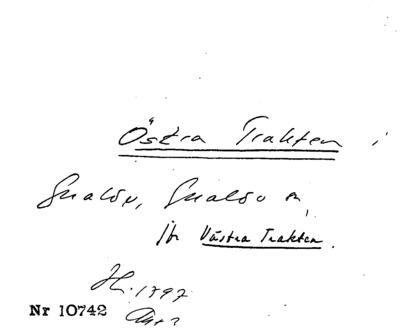 Östra Trakten i
Gualöv, Gualöv sn,
jfr Västra Trakten.
H. 1797
Nr 10742